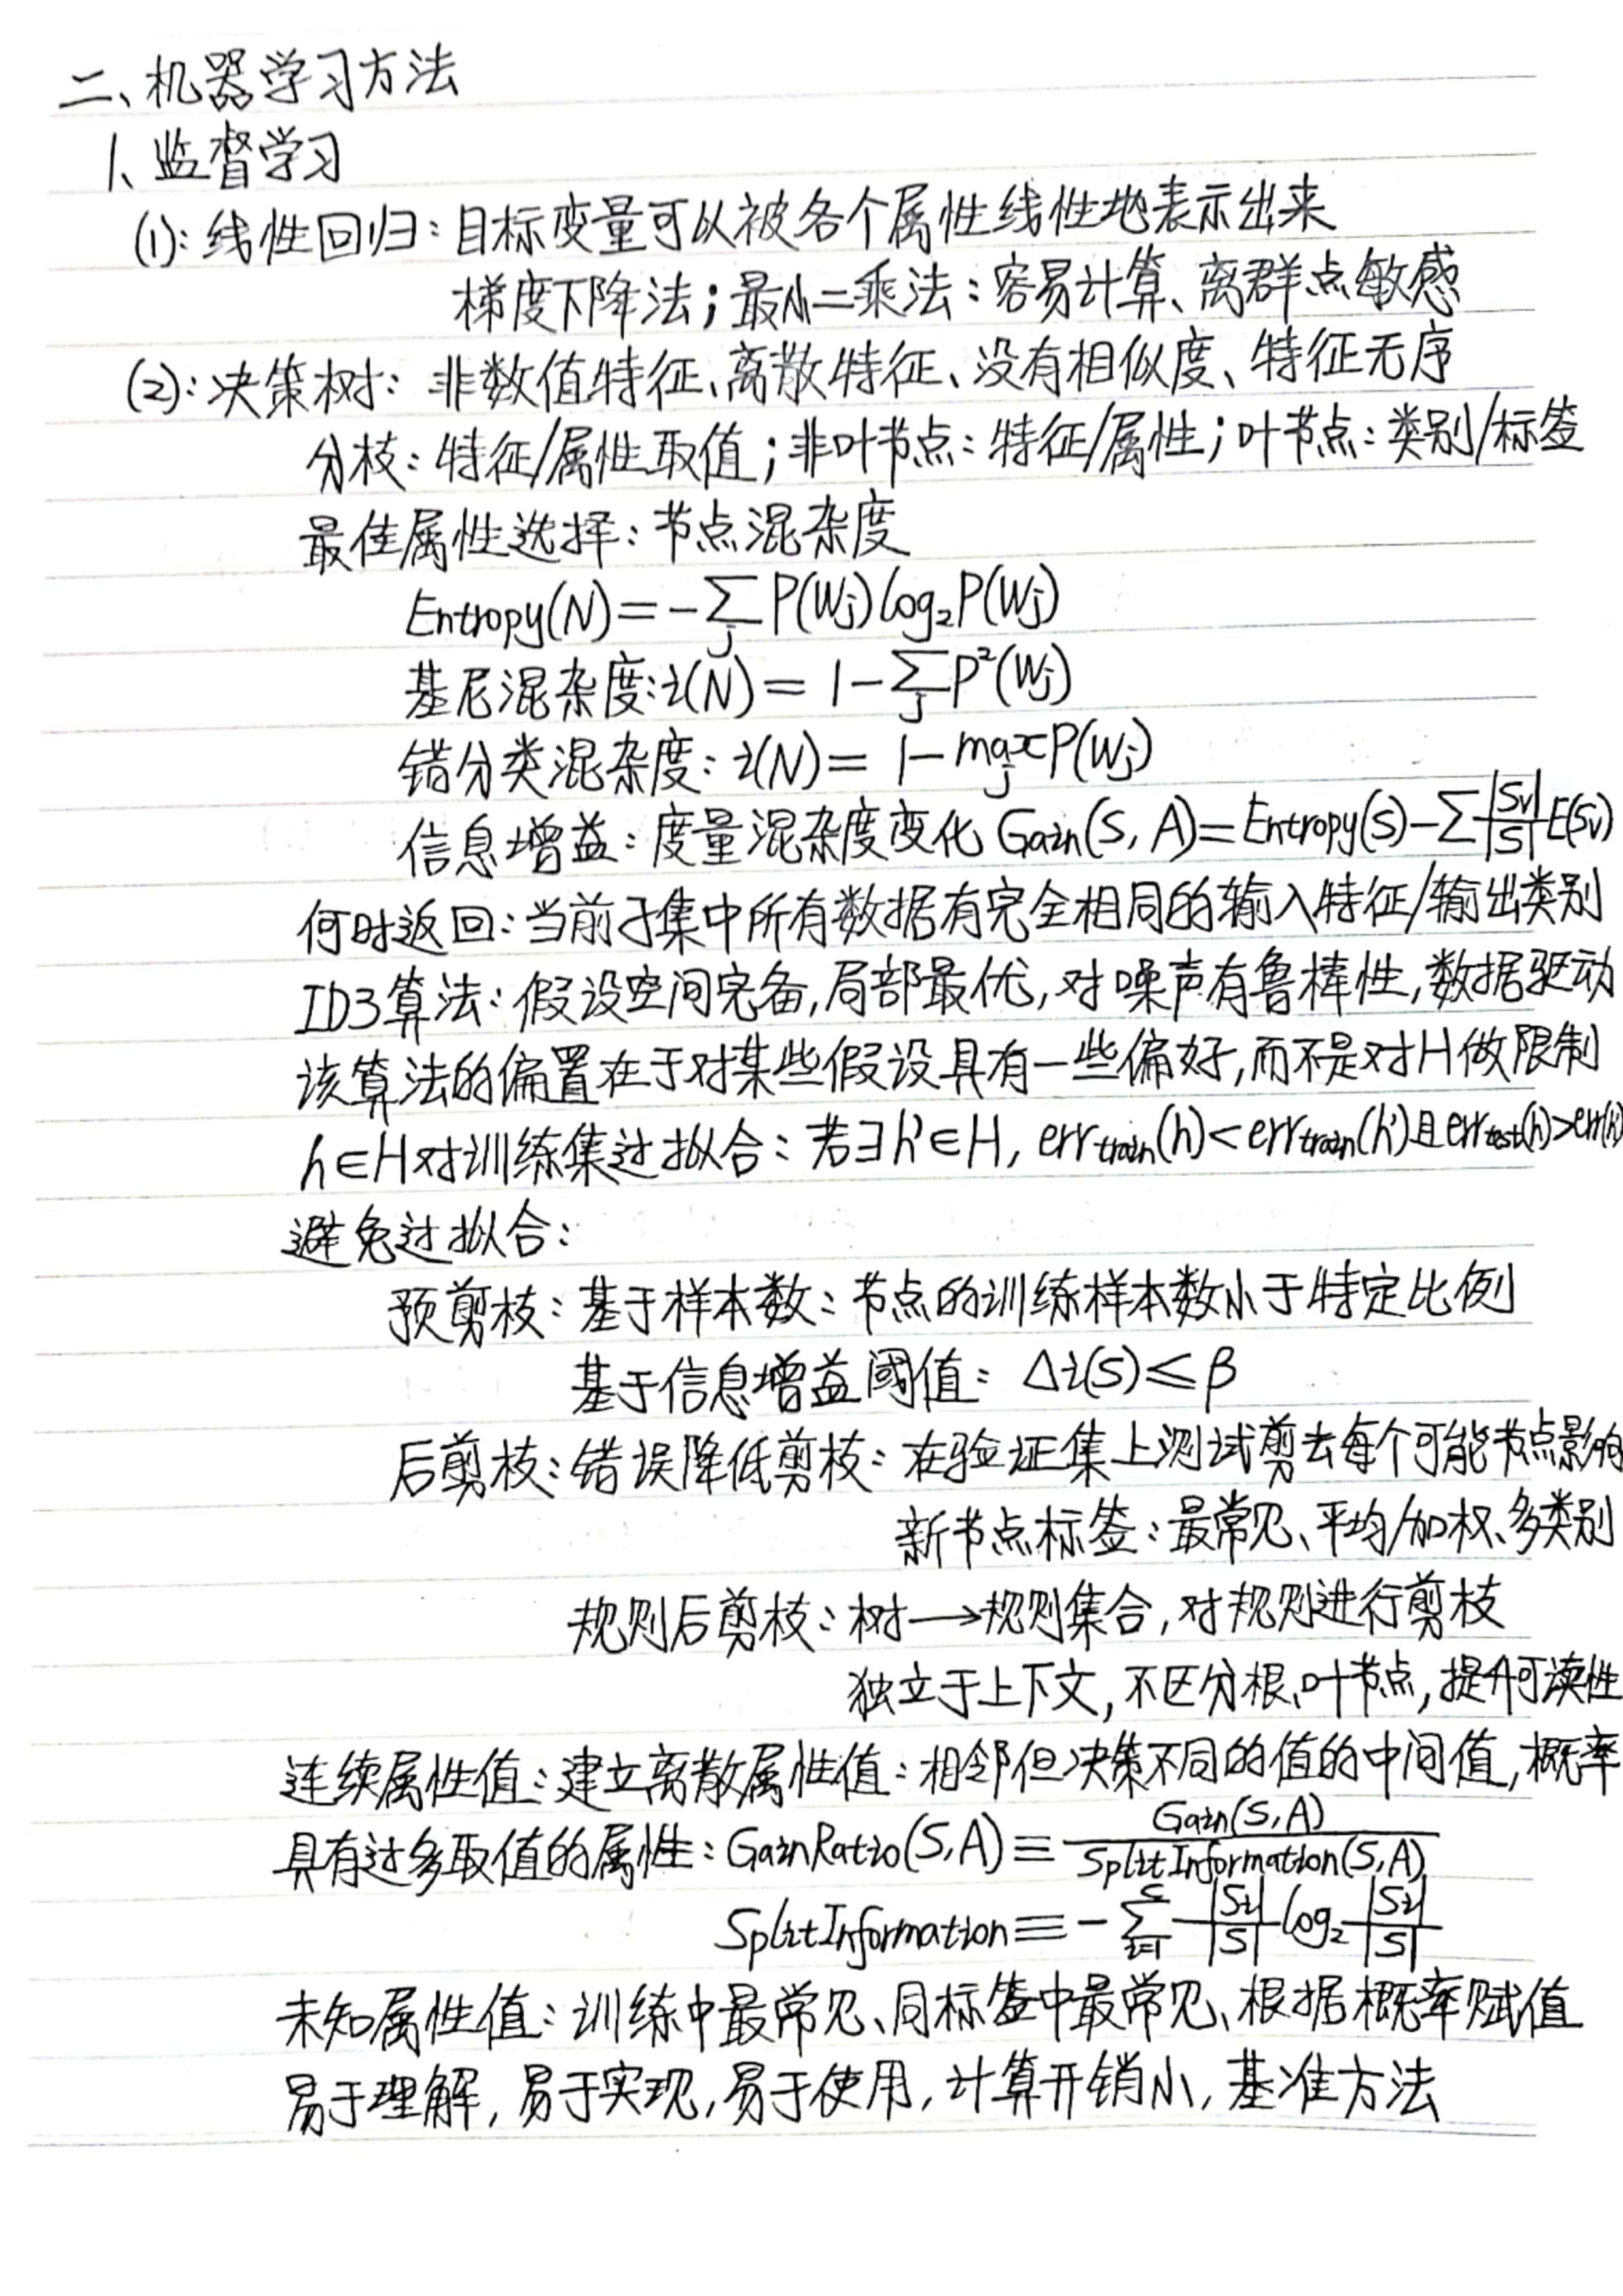 二、机器学习方法
1、监督学习
(1): 线性回归: 目标变量可以被各个属性线性地表示出来
梯度下降法; 最小二乘法: 容易计算、离群点敏感
(2): 决策树: 非数值特征、离散特征、没有相似度、特征无序
分枝: 特征/属性取值; 非叶节点: 特征/属性; 叶节点: 类别/标签
最佳属性选择: 节点混杂度
Entropy(N) = -∑_j P(Wj) log₂P(Wj)
基尼混杂度: i(N) = 1 - ∑_j P²(Wj)
错分类混杂度: i(N) = 1 - max_j P(Wj)
信息增益: 度量混杂度变化 Gain(S, A) = Entropy(S) - ∑ |Sv|/|S| E(Sv)
何时返回: 当前子集中所有数据有完全相同的输入特征/输出类别
ID3算法: 假设空间完备, 局部最优, 对噪声有鲁棒性, 数据驱动
该算法的偏置在于对某些假设具有一些偏好, 而不是对H做限制
h∈H对训练集过拟合: 若∃h'∈H, err_train(h) < err_train(h') 且 err_test(h) > err(h')
避免过拟合:
预剪枝: 基于样本数: 节点的训练样本数小于特定比例
基于信息增益阈值: Δi(S) ≤ β
后剪枝: 错误降低剪枝: 在验证集上测试剪去每个可能节点影响
新节点标签: 最常见、平均/加权、多类别
规则后剪枝: 树→规则集合, 对规则进行剪枝
独立于上下文, 不区分根、叶节点, 提升可读性
连续属性值: 建立离散属性值: 相邻但决策不同的值的中间值, 概率
具有过多取值的属性: GainRatio(S,A) ≡ Gain(S,A)/SplitInformation(S,A)
SplitInformation ≡ -∑_{i=1}^{c} |Si|/|S| log₂ |Si|/|S|
未知属性值: 训练中最常见、同标签中最常见、根据概率赋值
易于理解, 易于实现, 易于使用, 计算开销小, 基准方法